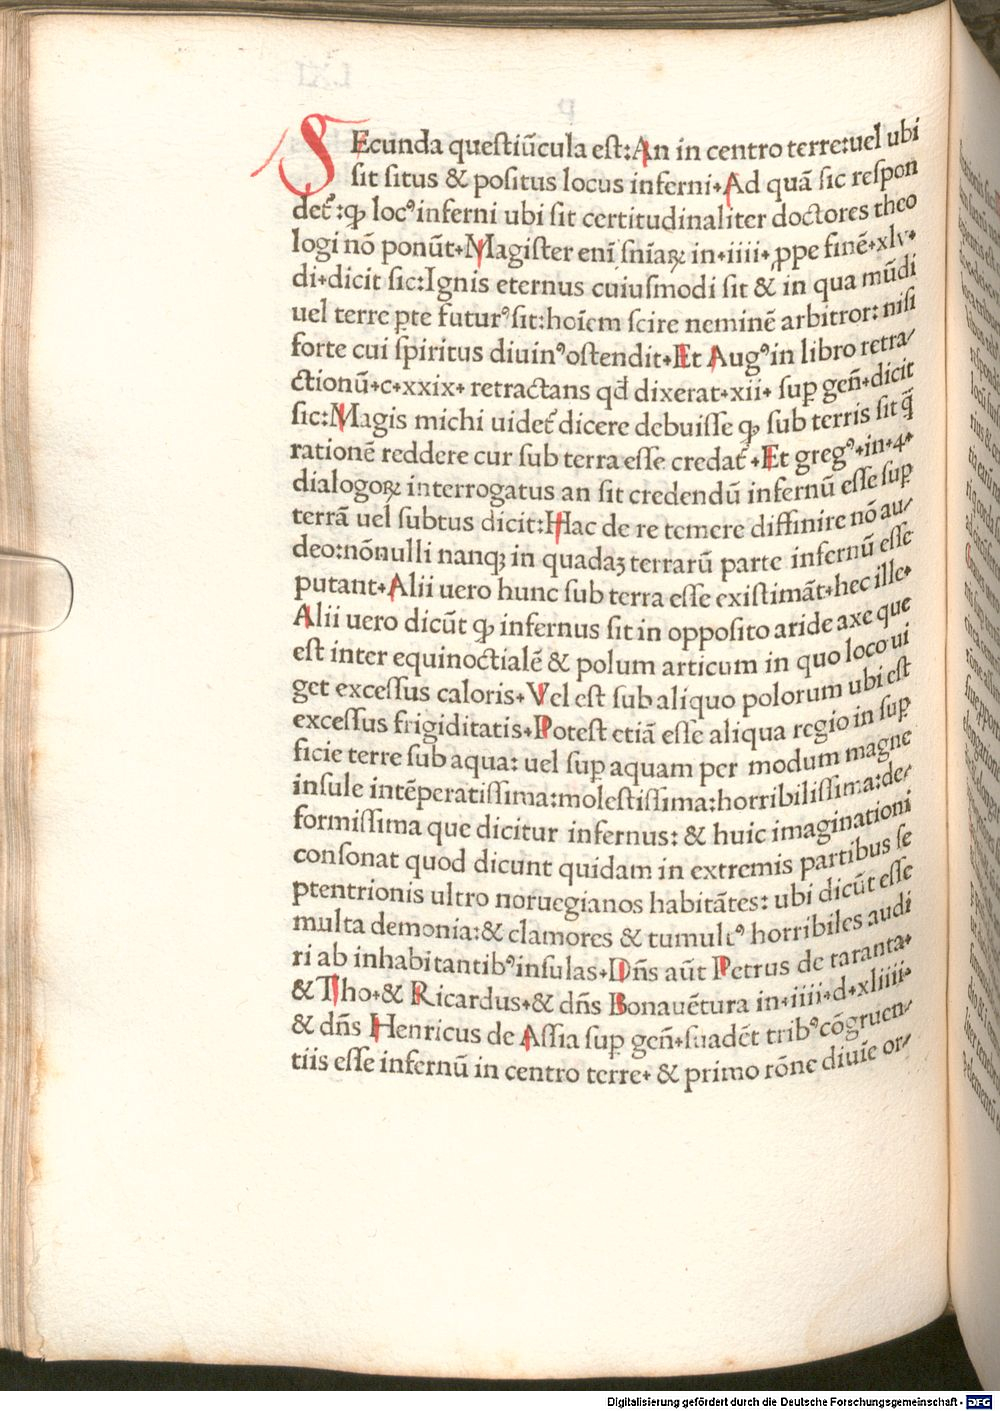 SEcunda questiũcula est: An in centro terre: uel ubi
sit situs & positus locus inferni. Ad quã sic respon
det᷒: ꝙ locꝰ inferni ubi sit certitudinaliter doctores theo
logi nõ ponũt. Magister eni᷒ snĩaꝝ in .iiii. ꝓpe finẽ .xlv.
di. dicit sic: Ignis eternus cuiusmodi sit & in qua mũdi
uel terre ꝑte futurꝰ sit: hoĩem scire neminẽ arbitror: nisi
forte cui spiritus diuinꝰ ostendit. Et Augꝰ in libro retra/
ctionũ .c.xxix. retractans qđ dixerat .xii. suꝑ geñ. dicit
sic: Magis michi uidet᷒ dicere debuisse ꝙ sub terris sit q̃
rationẽ reddere cur sub terra esse credat᷒. Et gregꝰ. in .4.
dialogoꝝ interrogatus an sit credendũ infernũ esse suꝑ
terrã uel subtus dicit: Hac de re temere diffinire nõ au/
deo: nõnulli nanqȝ in quadaȝ terrarũ parte infernũ esse
putant. Alii uero hunc sub terra esse existimãt. hec ille.
Alii uero dicũt ꝙ infernus sit in opposito aride axe que
est inter equinoctialẽ & polum articum in quo loco ui
get excessus caloris. Vel est sub aliquo polorum ubi est
excessus frigiditatis. Potest etiã esse aliqua regio in suꝑ
ficie terre sub aqua: uel suꝑ aquam per modum magne
insule intẽperatissima: molestissima: horribilissima: de/
formissima que dicitur infernus: & huic imaginationi
consonat quod dicunt quidam in extremis partibus se
ptentrionis ultro noruegianos habitãtes: ubi dicũt esse
multa demonia: & clamores & tumultꝰ horribiles audi
ri ab inhabitantibꝰ insulas. Dñs aũt Petrus de taranta.
& Tho. & Ricardus. & dñs Bonauẽtura in .iiii. d. xliiii.
& dñs Henricus de Assia suꝑ geñ. suadẽt tribꝰ cõgruen/
tiis esse infernũ in centro terre. & primo rõne diuiẽ or/
Digitalisierung gefördert durch die Deutsche Forschungsgemeinschaft - DFG